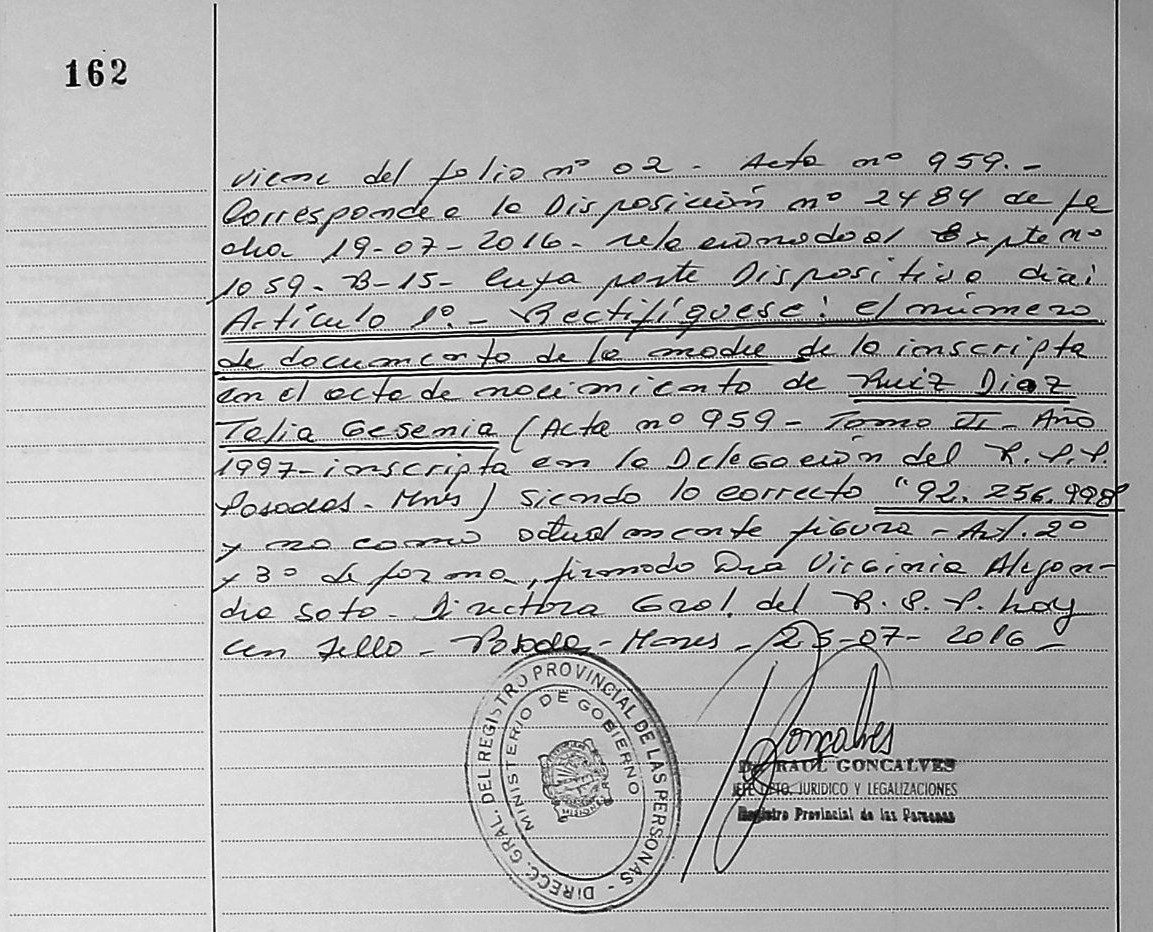 162
viene del folio nº 02 - Acta nº 959.-
Corresponde a la Disposición nº 2484 de fe
cha 19-07-2016- relacionado al Expte nº
1059-B-15- cuya parte Dispositiva dice:
Artículo 1º.- Rectifíquese: el número
de documento de la madre de la inscripta
en el acta de nacimiento de Ruiz Diaz
Telia Gesenia (Acta nº 959 - Tomo II - Año
1997- inscripta en la Delegación del R.P.P.
Posadas - Mnes) siendo lo correcto "92.256.998"
y no como actualmente figura - Art. 2º
y 3º de forma, firmado Dra Virginia Alejan-
dra Soto - Directora Gral. del R.P.P. hay
un sello - Posadas - Mnes - 25-07-2016 -
DIRECC. GRAL. DEL REGISTRO PROVINCIAL DE LAS PERSONAS -
MINISTERIO DE GOBIERNO
MISIONES
Goncalves
Dr. RAUL GONCALVES
JEFE DPTO. JURIDICO Y LEGALIZACIONES
Registro Provincial de las Personas